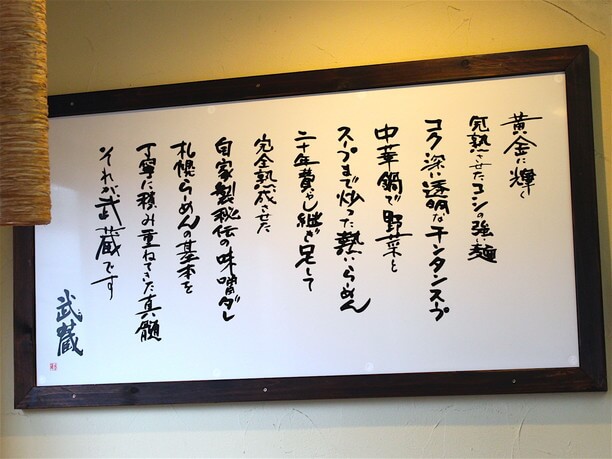 黄金に輝く
完熟させたコシの強い麺
コク深い透明なチンタンスープ
中華鍋で野菜と
スープまで炒った熱いらーめん
二十年費やし継ぎ足して
完全熟成させた
自家製秘伝の味噌ダレ
札幌らーめんの基本を
丁寧に積み重ねてきた真髄
それが武蔵です
武蔵